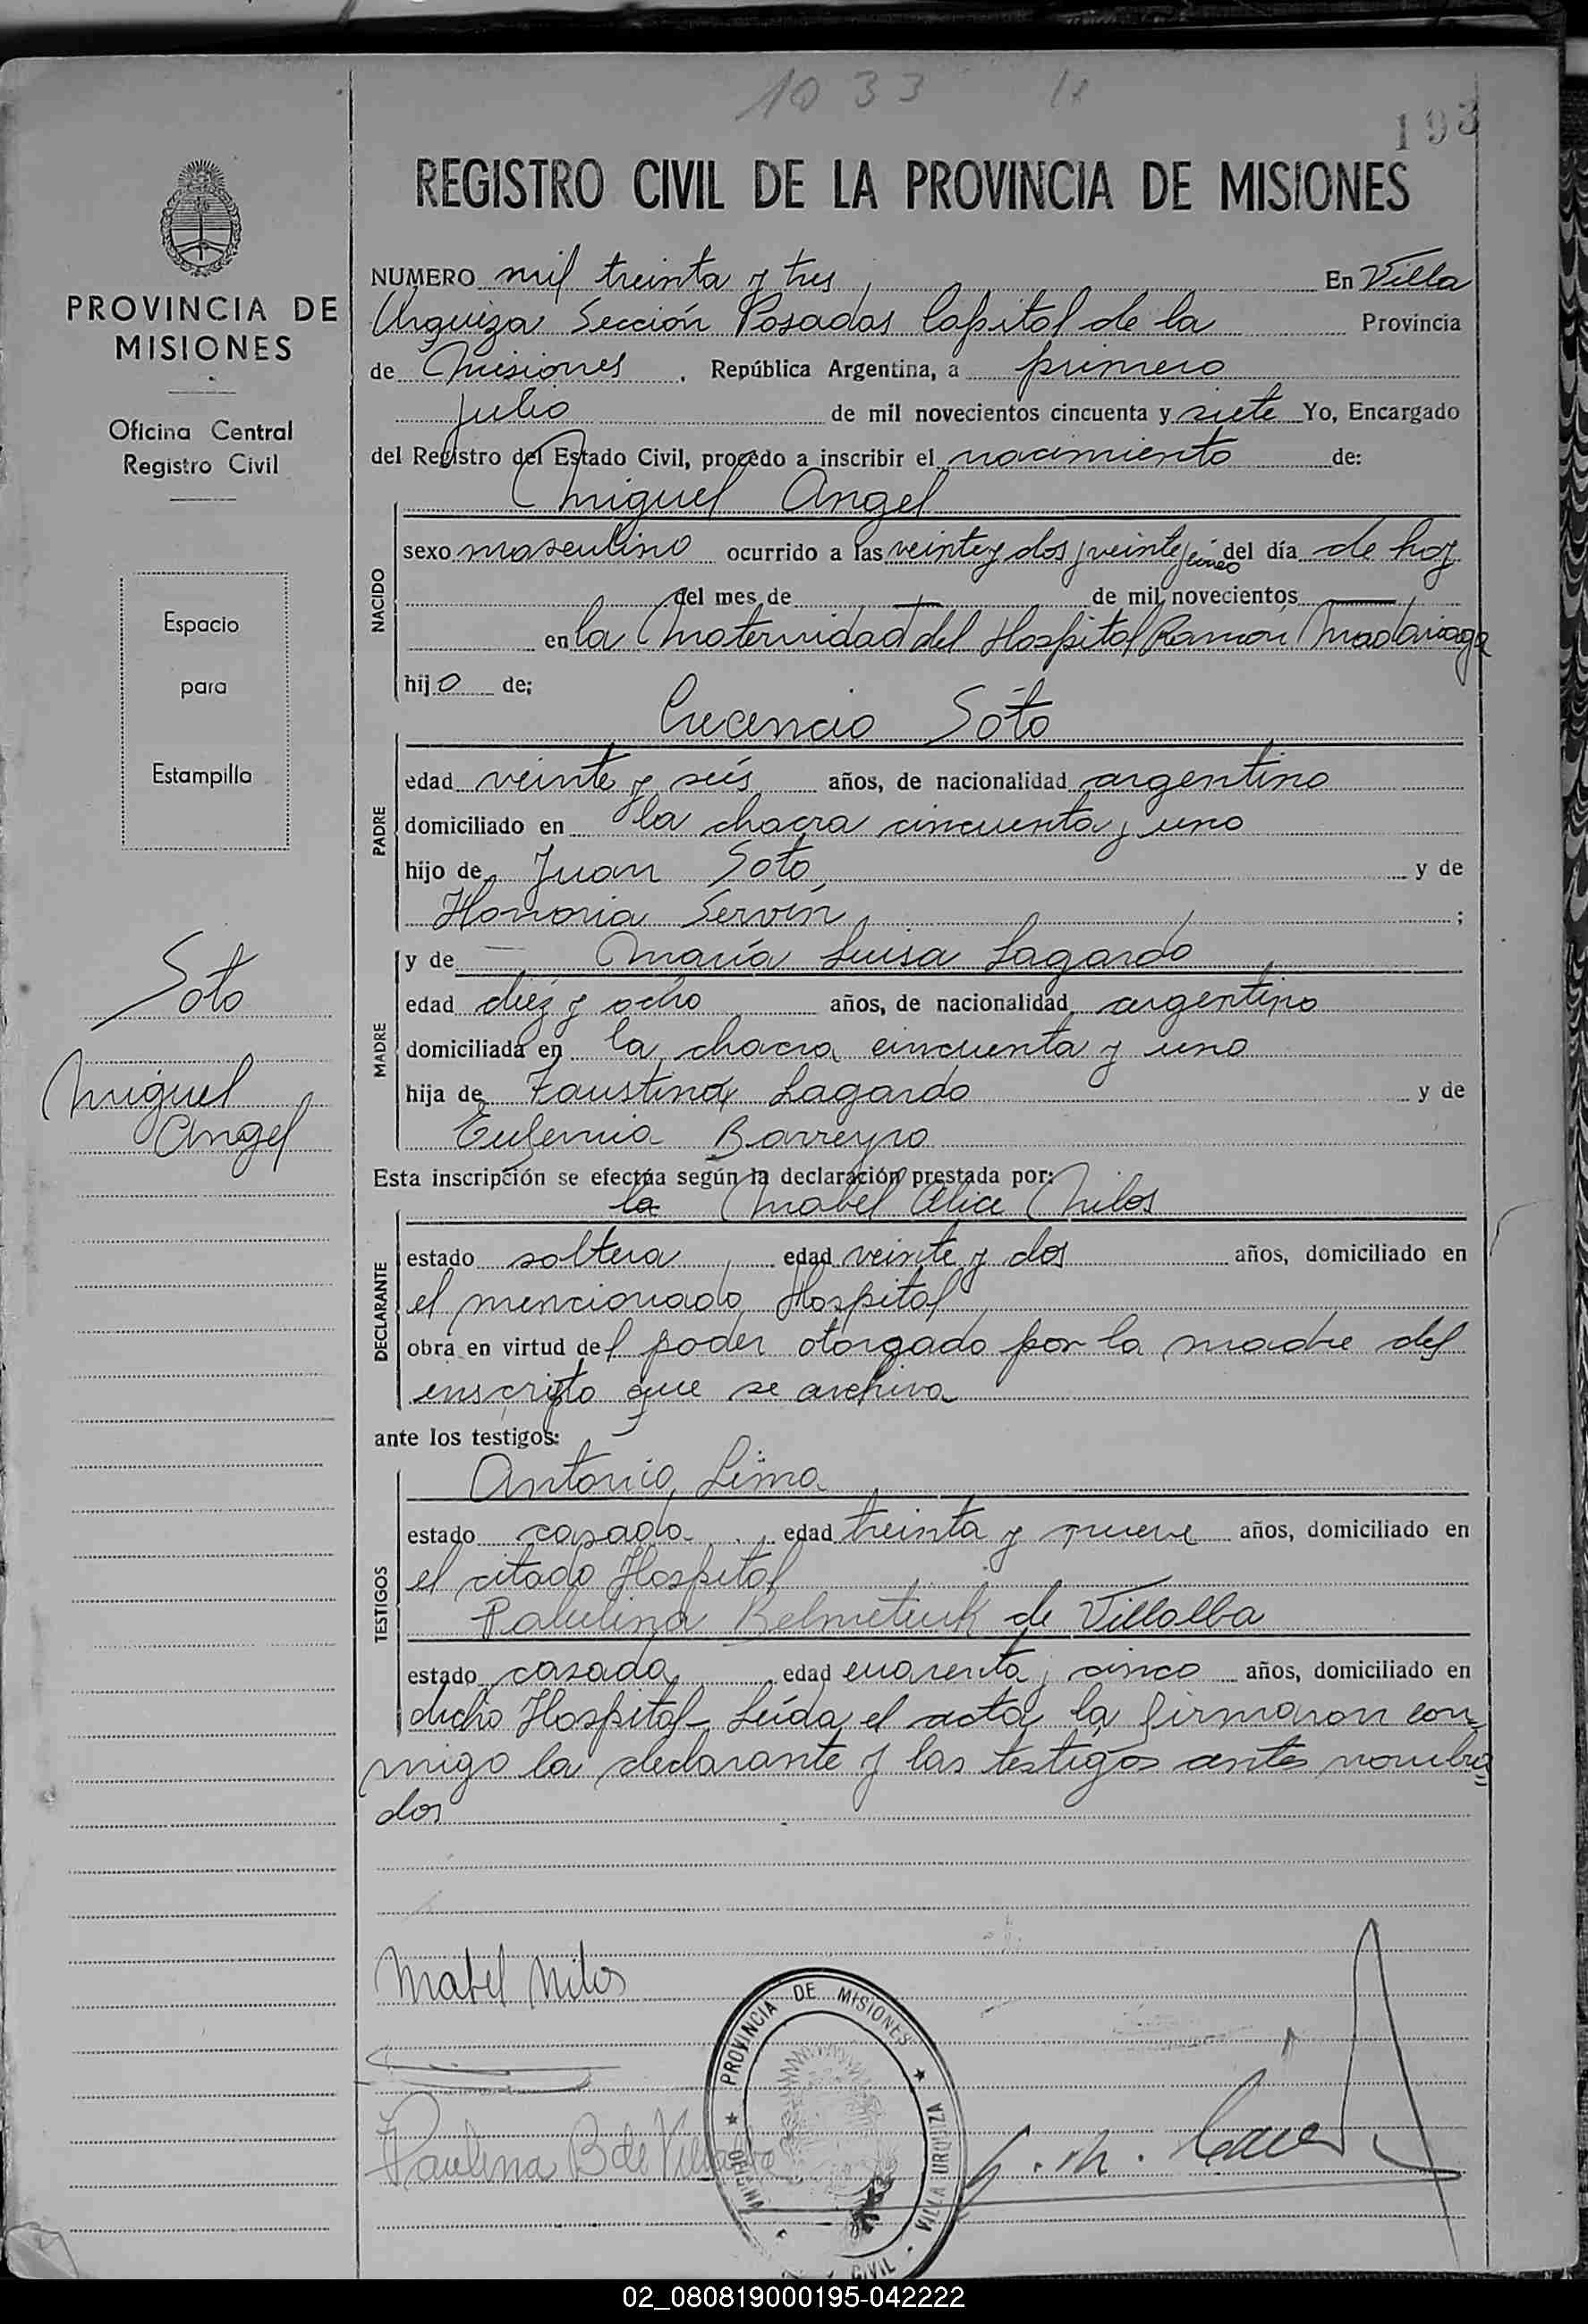 1033
193
REGISTRO CIVIL DE LA PROVINCIA DE MISIONES
PROVINCIA DE
MISIONES
Oficina Central
Registro Civil
Espacio
para
Estampilla
Soto
Miguel
Angel
NUMERO mil treinta y tres, En Villa
Urquiza Sección Posadas Capital de la Provincia
de Misiones, República Argentina, a primero
julio de mil novecientos cincuenta y siete Yo, Encargado
del Registro del Estado Civil, procedo a inscribir el nacimiento de:
Miguel Angel
NACIDO
sexo masculino ocurrido a las veinte y dos y veinte y cinco del día de hoy
del mes de — de mil novecientos —
en la Maternidad del Hospital Ramón Madariaga
hijo de;
Crecencio Soto
PADRE
edad veinte y seis años, de nacionalidad argentino
domiciliado en la chacra cincuenta y uno
hijo de Juan Soto, y de
Honoria Servín, ;
y de María Luisa Lagardo
MADRE
edad diez y ocho años, de nacionalidad argentina
domiciliada en la chacra cincuenta y uno
hija de Faustino Lagardo y de
Eufemia Barreyro
Esta inscripción se efectúa según la declaración prestada por:
la Mabel Alice Milos
DECLARANTE
estado soltera, edad veinte y dos años, domiciliado en
el mencionado Hospital
obra en virtud del poder otorgado por la madre del
inscripto que se archiva
ante los testigos:
Antonio Lima
TESTIGOS
estado casado, edad treinta y nueve años, domiciliado en
el citado Hospital
Paulina de Villalba
estado casada, edad cuarenta y cinco años, domiciliado en
dicho Hospital- Leída el acta, la firmaron con-
migo la declarante y los testigos antes nombra=
dos
Mabel Milos
Paulina B de Villalba
PROVINCIA DE MISIONES
OFICINA
VILLA URQUIZA
CIVIL
02_080819000195-042222